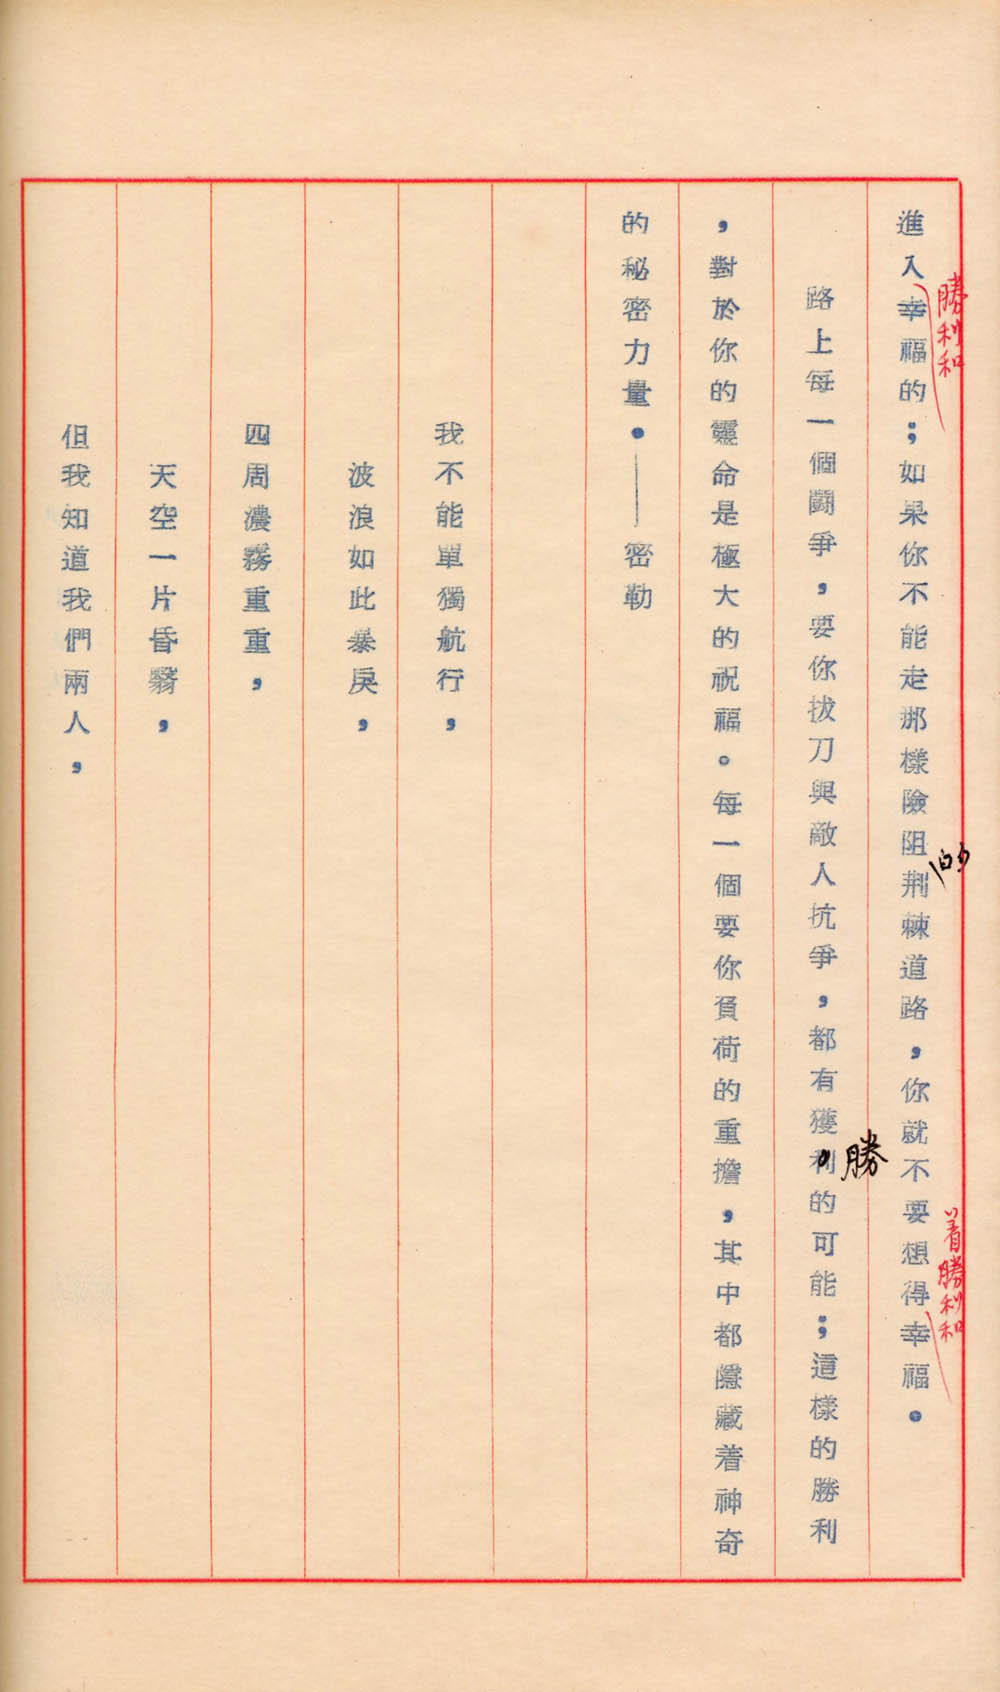 進入幸福的；如果你不能走那樣險阻荆棘道路，你就不要想得幸福。
勝利和
的
着勝利和
路上每一個鬭爭，要你拔刀與敵人抗爭，都有獲利的可能；這樣的勝利
勝
，對於你的靈命是極大的祝福。每一個要你負荷的重擔，其中都隱藏着神奇
的秘密力量。——密勒
我不能單獨航行，
波浪如此暴戾，
四周濃霧重重，
天空一片昏翳，
但我知道我們兩人，